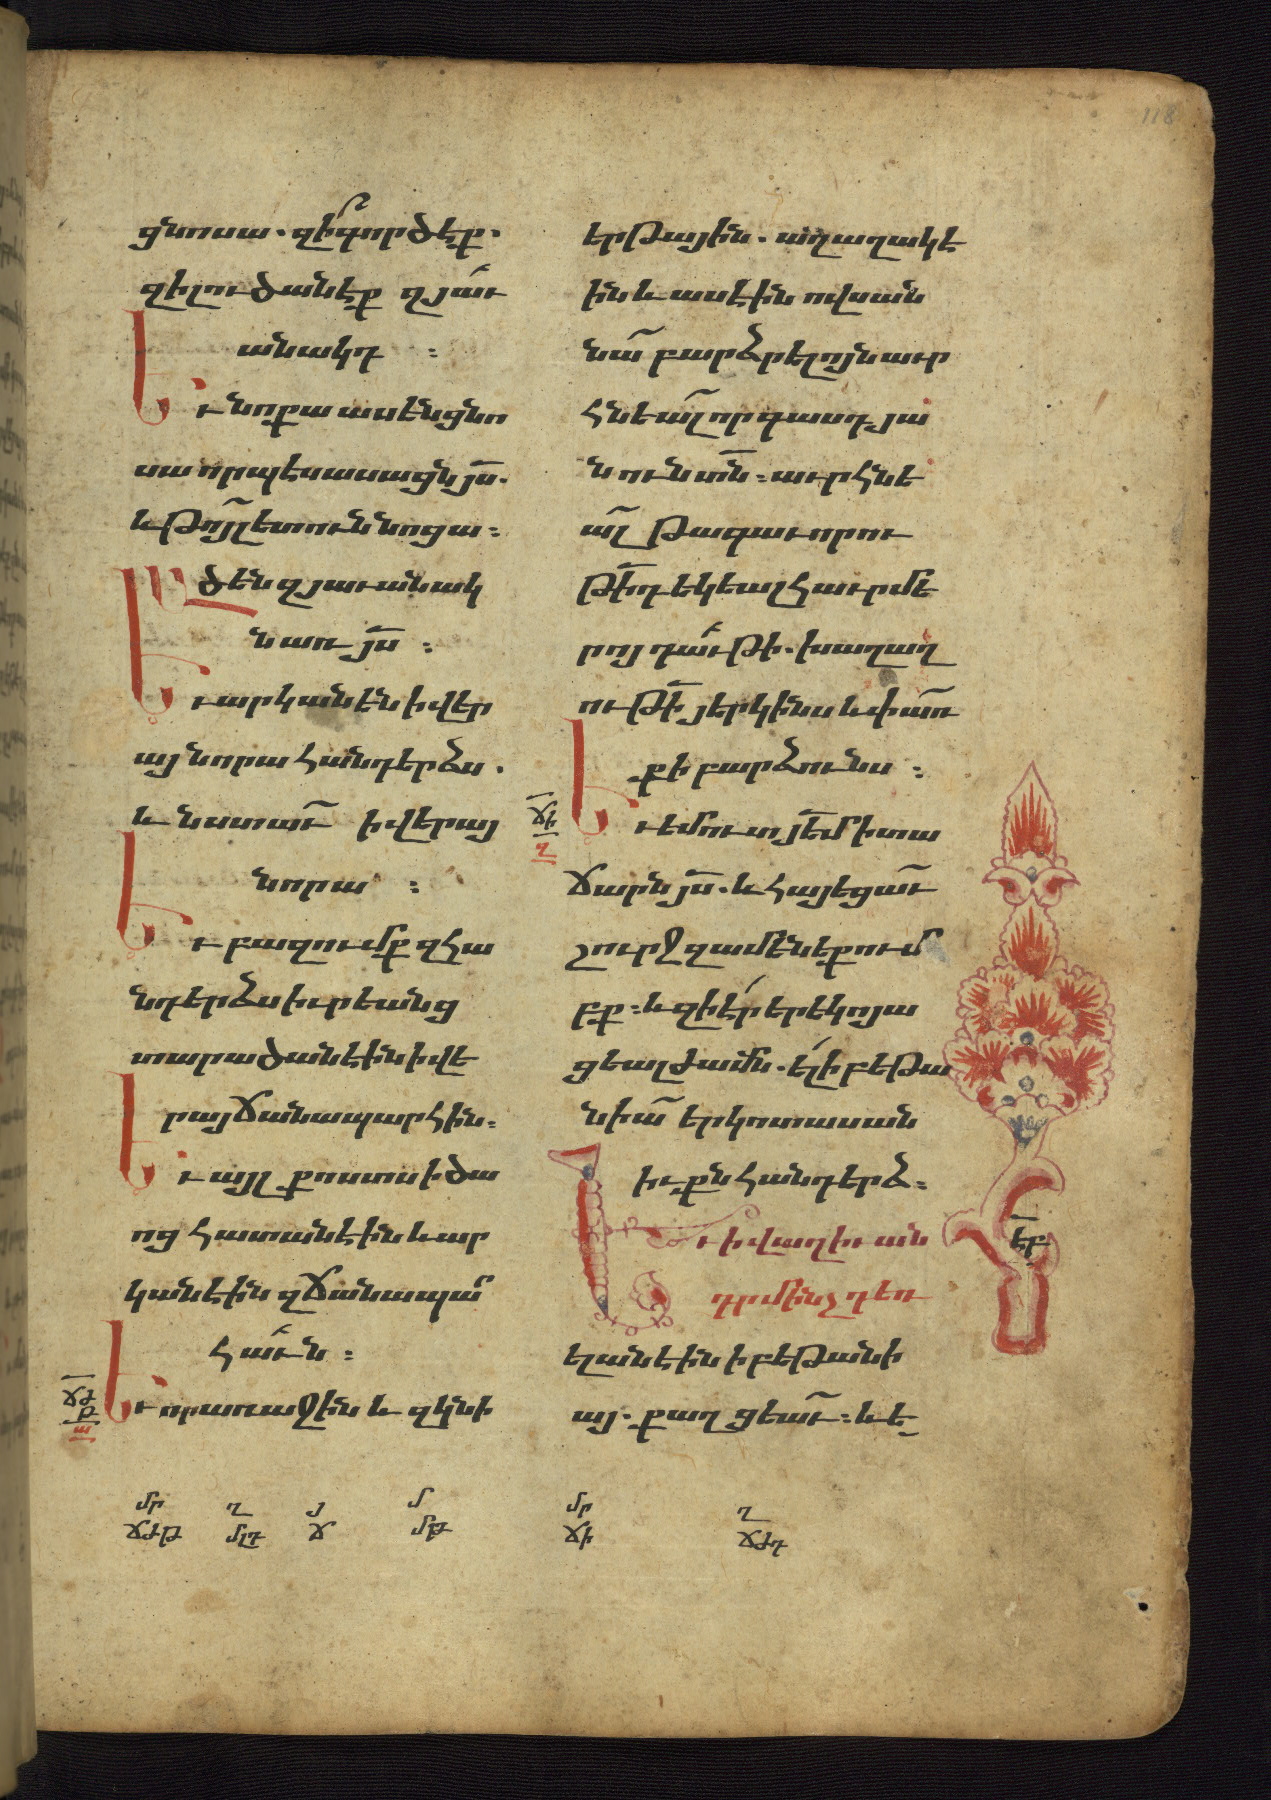 118
ցնոսա. զի՞գործէք.
զիլուծանէք զյաւ
անակդ :
Եւ նոքա ասենցնո
սա որպէսասացնյս.
և թոյլետուն նոցա :
Ածեն զյաւանակ
նառ յս :
Եւ արկանեն իվեր
այ նորա հանդերձս.
և նստաւ իվերայ
նորա :
Եւ բազումք զհա
նդերձս իւրեանց
տարածանէին իվե
րայ ճանապարհին :
Եւ այլ քոստս իծա
ռոց հատանէին և ար
կանէին զճանապա
հաւն :
ճժ
ք
ա
Եւ որառաջին և զկնի
երթային. աղաղակէ
ին և ասէին ովսան
նա բարձրելոյն աւր
հնեալ որ գասդ յա
նուն տն : աւրհնե
ալ թագաւորու
թիդ եկեալ հաւրմե
րոյ դաւթի. խաղաղ
ութի յերկինս և փառ
քի բարձունս :
ճի
ղ
Եւ եմուտ յեմ իտա
ճարն յս. և հայեցաւ
շուրջ զամենեքում
բք : և զիէր երեկոյա
ցեալ ժամն. ել ի բեթա
նիա երկոտասան
իւքն հանդերձ :
Եւ իվաղիւ ան
դր մինչ դեռ
ելանէին ի բեթանի
այ. քաղցեաւ : և ե
էբ
մր ղ յ մ
ճժթ մլդ ճ մթ
մր ղ
ճի ճժդ